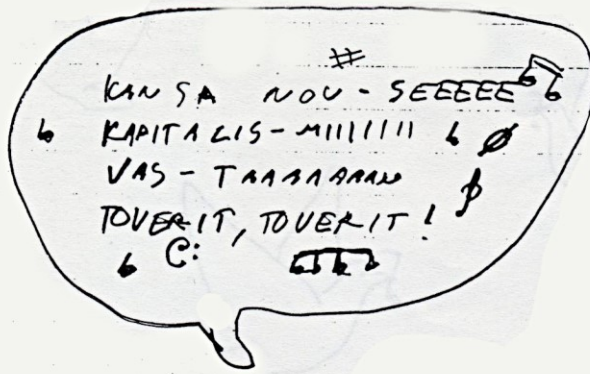 KANSA NOU-SEEEEE
KAPITALIS-MIIIIIII
VAS-TAAAAAAAN
TOVERIT, TOVERIT!
C: